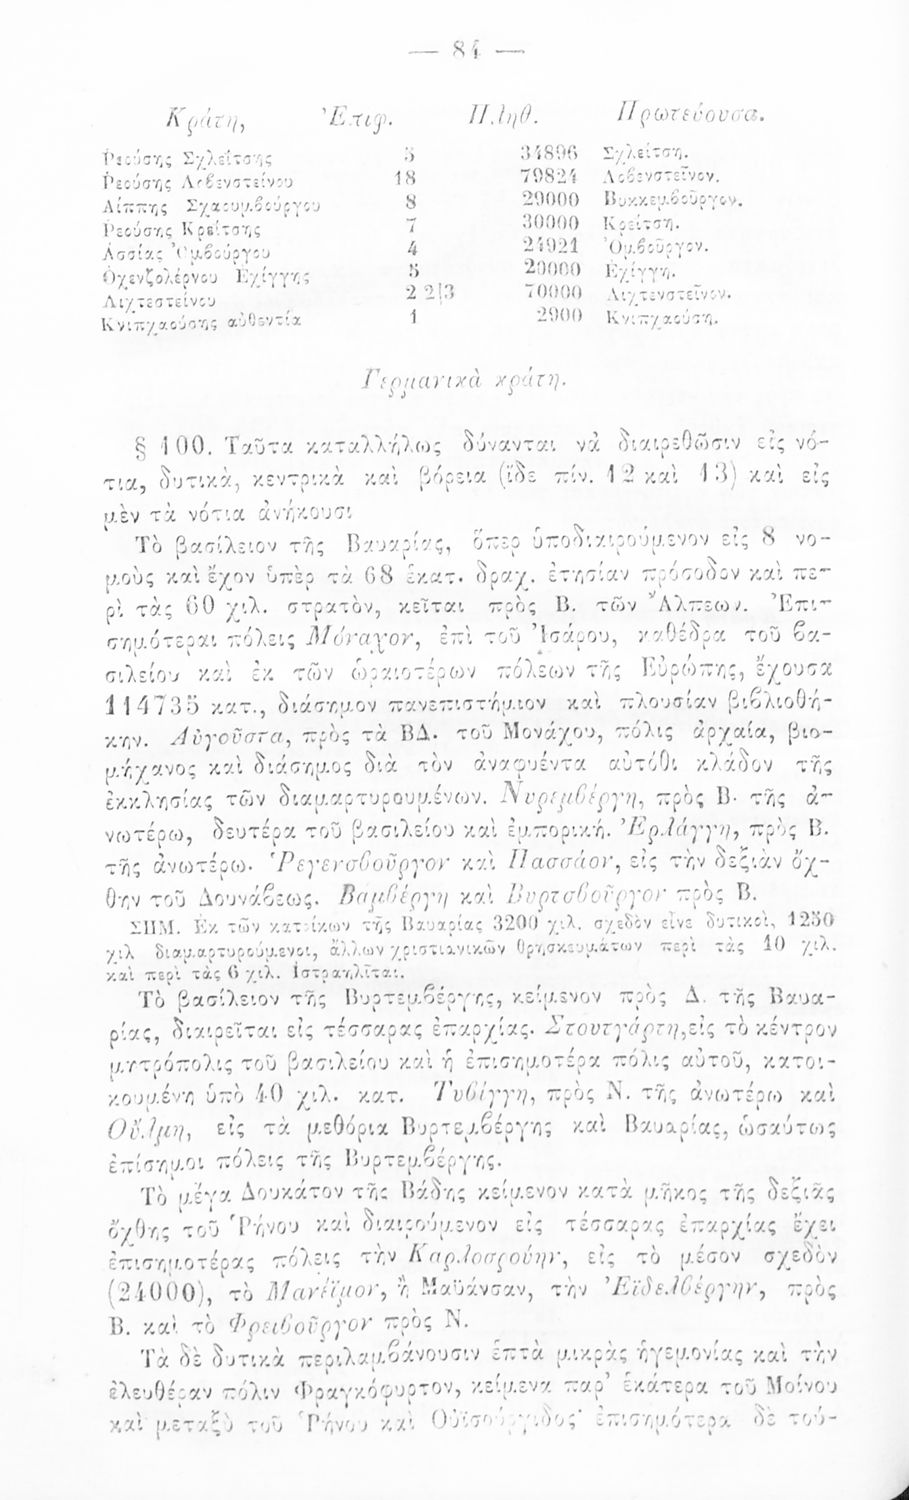 — 84 —
Κράτη, Ἐπιφ. Πληθ. Πρωτεύουσα.
Ῥεούσης Σχλεΐτσης 5 34896 Σχλείτση.
Ῥεούσης Λοβενστείνου 18 79824 Λοβενστεῖνον.
Λίππης Σχαουμβούργου 8 29000 Βυκκεμβοῦργον.
Ῥεούσης Κρείτσης 7 30000 Κρείτση.
Ἀσσίας Ὁμβούργου 4 24921 Ὁμβοῦργον.
Ὀχενζολέρνου Ἐχίγγης 5 20000 Ἐχίγγη.
Λιχτεστείνου 2 2|3 70000 Λιχτενστεῖνον.
Κνιπχαούσης αὐθεντία 1 2900 Κνιπχαούση.
Γερμανικὰ κράτη.
§ 100. Ταῦτα καταλλήλως δύνανται νὰ διαιρεθῶσιν εἰς νό-
τια, δυτικὰ, κεντρικὰ καὶ βόρεια (ἴδε πίν. 12 καὶ 13) καὶ εἰς
μὲν τὰ νότια ἀνήκουσι
Τὸ βασίλειον τῆς Βαυαρίας, ὅπερ ὑποδιαιρούμενον εἰς 8 νο-
μοὺς καὶ ἔχον ὑπὲρ τὰ 68 ἑκατ. δραχ. ἐτησίαν πρόσοδον καὶ πε-
ρὶ τὰς 60 χιλ. στρατὸν, κεῖται πρὸς Β. τῶν Ἄλπεων. Ἐπι-
σημότεραι πόλεις Μόναχον, ἐπὶ τοῦ Ἰσάρου, καθέδρα τοῦ βα-
σιλείου καὶ ἐκ τῶν ὡραιοτέρων πόλεων τῆς Εὐρώπης, ἔχουσα
114735 κατ., διάσημον πανεπιστήμιον καὶ πλουσίαν βιβλιοθή-
κην. Αὐγοῦστα, πρὸς τὰ ΒΔ. τοῦ Μονάχου, πόλις ἀρχαία, βιο-
μήχανος καὶ διάσημος διὰ τὸν ἀναφυέντα αὐτόθι κλάδον τῆς
ἐκκλησίας τῶν διαμαρτυρουμένων. Νυρεμβέργη, πρὸς Β. τῆς ἀ-
νωτέρω, δευτέρα τοῦ βασιλείου καὶ ἐμπορική. Ἐρλάγγη, πρὸς Β.
τῆς ἀνωτέρω. Ῥεγενσβοῦργον καὶ Πασσάον, εἰς τὴν δεξιὰν ὄχ-
θην τοῦ Δουνάβεως. Βαμβέργη καὶ Βυρτσβοῦργον πρὸς Β.
ΣΗΜ. Ἐκ τῶν κατοίκων τῆς Βαυαρίας 3200 χιλ. σχεδὸν εἶνε δυτικοὶ, 1250
χιλ διαμαρτυρούμενοι, ἄλλων χριστιανικῶν θρησκευμάτων περὶ τὰς 10 χιλ.
καὶ περὶ τὰς 6 χιλ. Ἰσραηλῖται.
Τὸ βασίλειον τῆς Βυρτεμβέργης, κείμενον πρὸς Δ. τῆς Βαυα-
ρίας, διαιρεῖται εἰς τέσσαρας ἐπαρχίας. Στουτγάρτη, εἰς τὸ κέντρον
μητρόπολις τοῦ βασιλείου καὶ ἡ ἐπισημοτέρα πόλις αὐτοῦ, κατοι-
κουμένη ὑπὸ 40 χιλ. κατ. Τυβίγγη, πρὸς Ν. τῆς ἀνωτέρω καὶ
Οὔλμη, εἰς τὰ μεθόρια Βυρτεμβέργης καὶ Βαυαρίας, ὡσαύτως
ἐπίσημοι πόλεις τῆς Βυρτεμβέργης.
Τὸ μέγα Δουκάτον τῆς Βάδης κείμενον κατὰ μῆκος τῆς δεξιᾶς
ὄχθης τοῦ Ῥήνου καὶ διαιρούμενον εἰς τέσσαρας ἐπαρχίας ἔχει
ἐπισημοτέρας πόλεις τὴν Καρλοσρούην, εἰς τὸ μέσον σχεδὸν
(24000), τὸ Μανέϊμον, ἢ Μαϋάνσαν, τὴν Ἐϊδελβέργην, πρὸς
Β. καὶ τὸ Φρειβοῦργον πρὸς Ν.
Τὰ δὲ δυτικὰ περιλαμβάνουσιν ἑπτὰ μικρὰς ἡγεμονίας καὶ τὴν
ἐλευθέραν πόλιν Φραγκόφυρτον, κείμενα παρ' ἑκάτερα τοῦ Μοίνου
καὶ μεταξὺ τοῦ Ῥήνου καὶ Οὐϊσούργιδος· ἐπισημότερα δὲ τού-